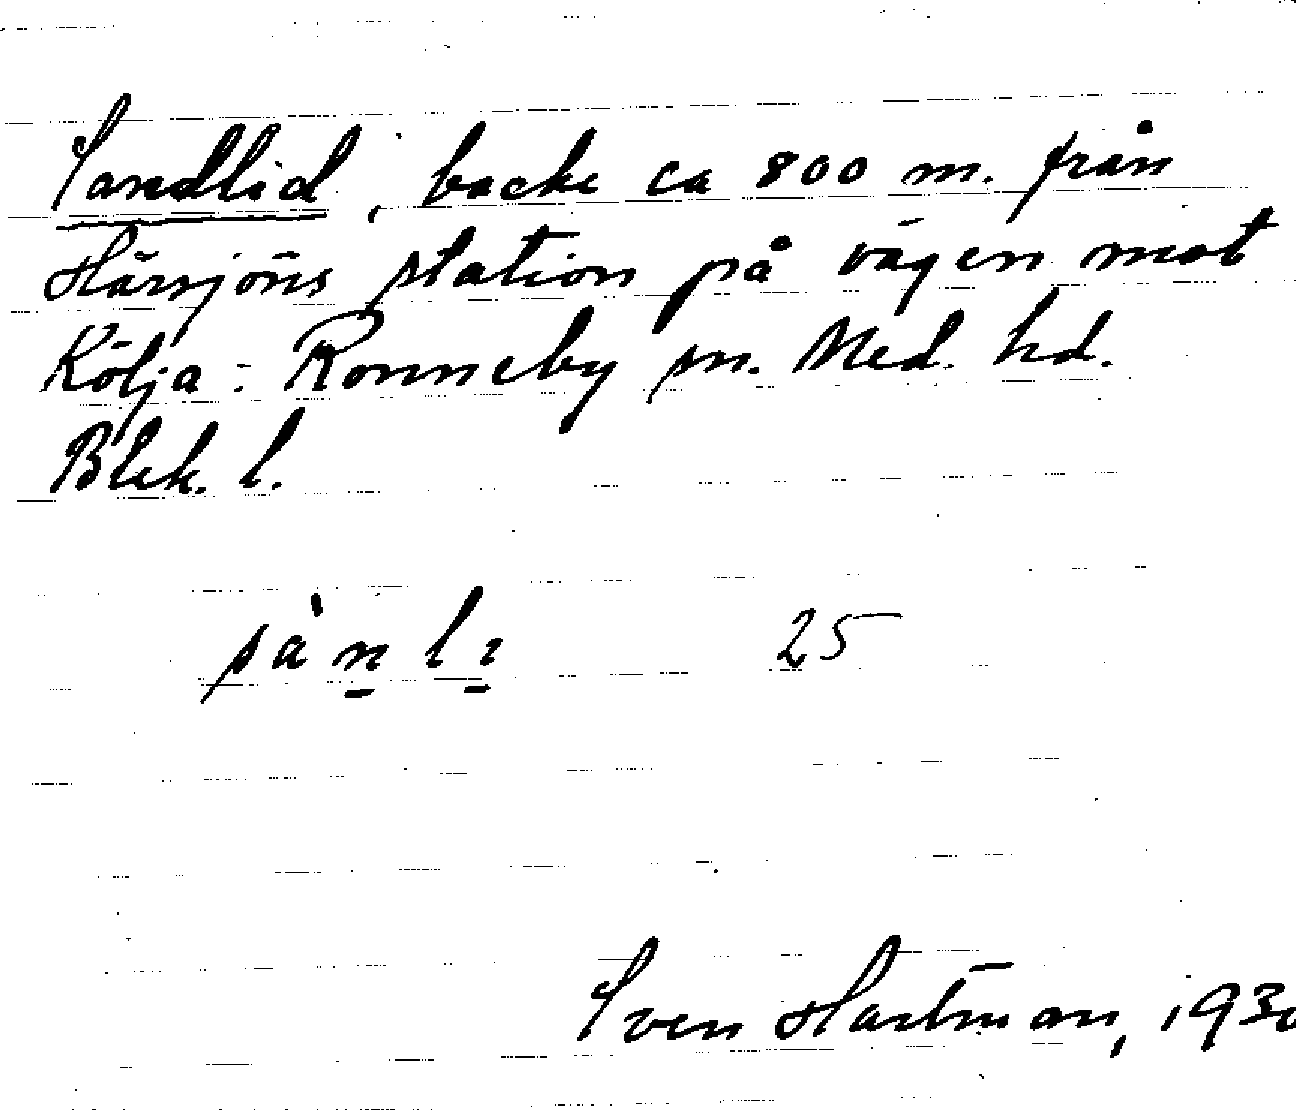 Sandlid, backe ca 800 m. från
Härsjöns station på vägen mot
Kölja: Ronneby sn. Med. hd.
Blek. l.
sànlı 25
Sven Hartman, 193